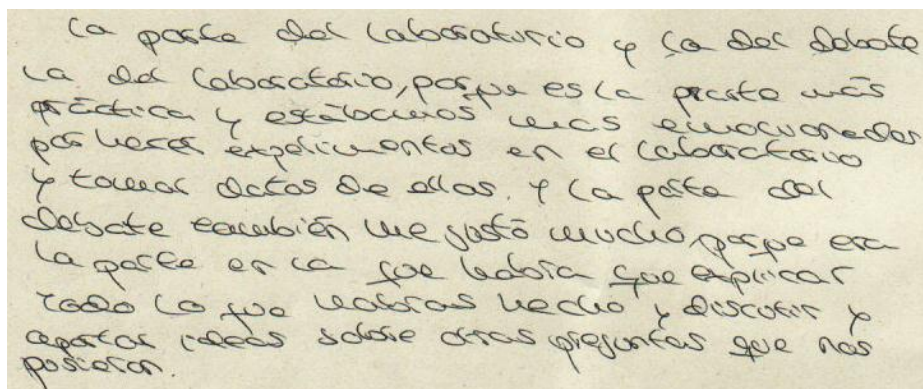 La parte del laboratorio y la del debate
La del laboratorio, porque es la prarte más
práctica y estábamos mas emocionados
por hacer experimentos en el laboratorio
y tomar datos de ellos. Y la parte del
debate también me gustó mucho, porque era
la parte en la que había que explicar
todo lo que habías hecho y discutir y
aportar ideas sobre otras preguntas que nos
pusieron.